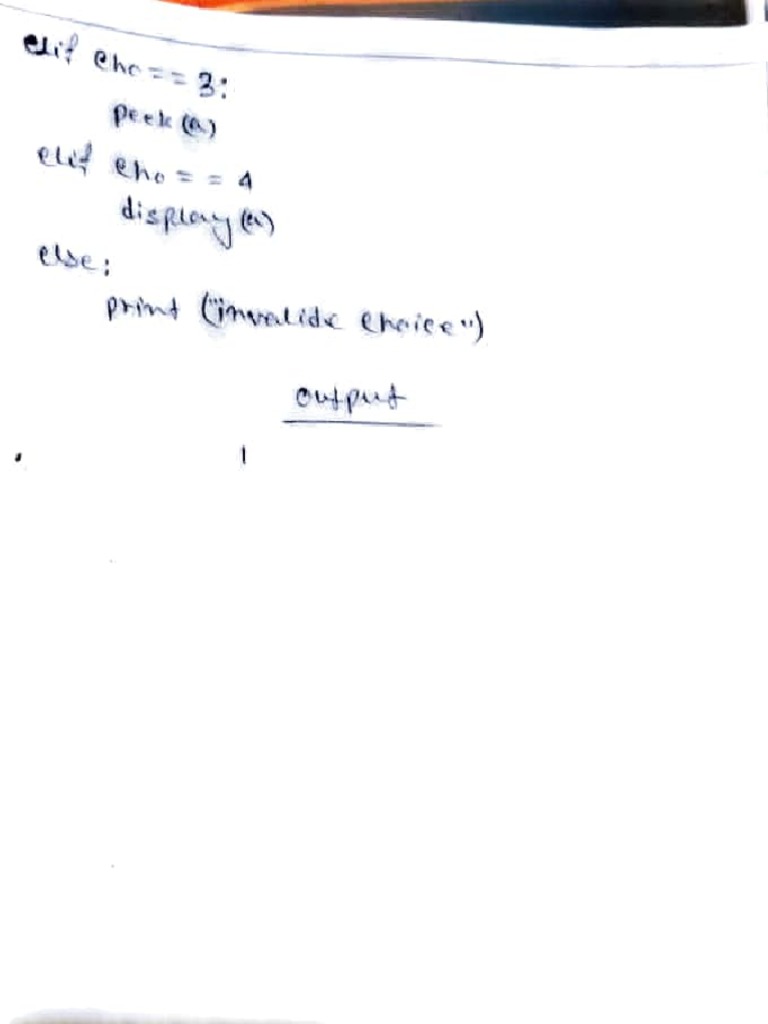 elif cho == 3:
peek (a)
elif cho == 4
display (a)
else:
print ("invalide choice")
output